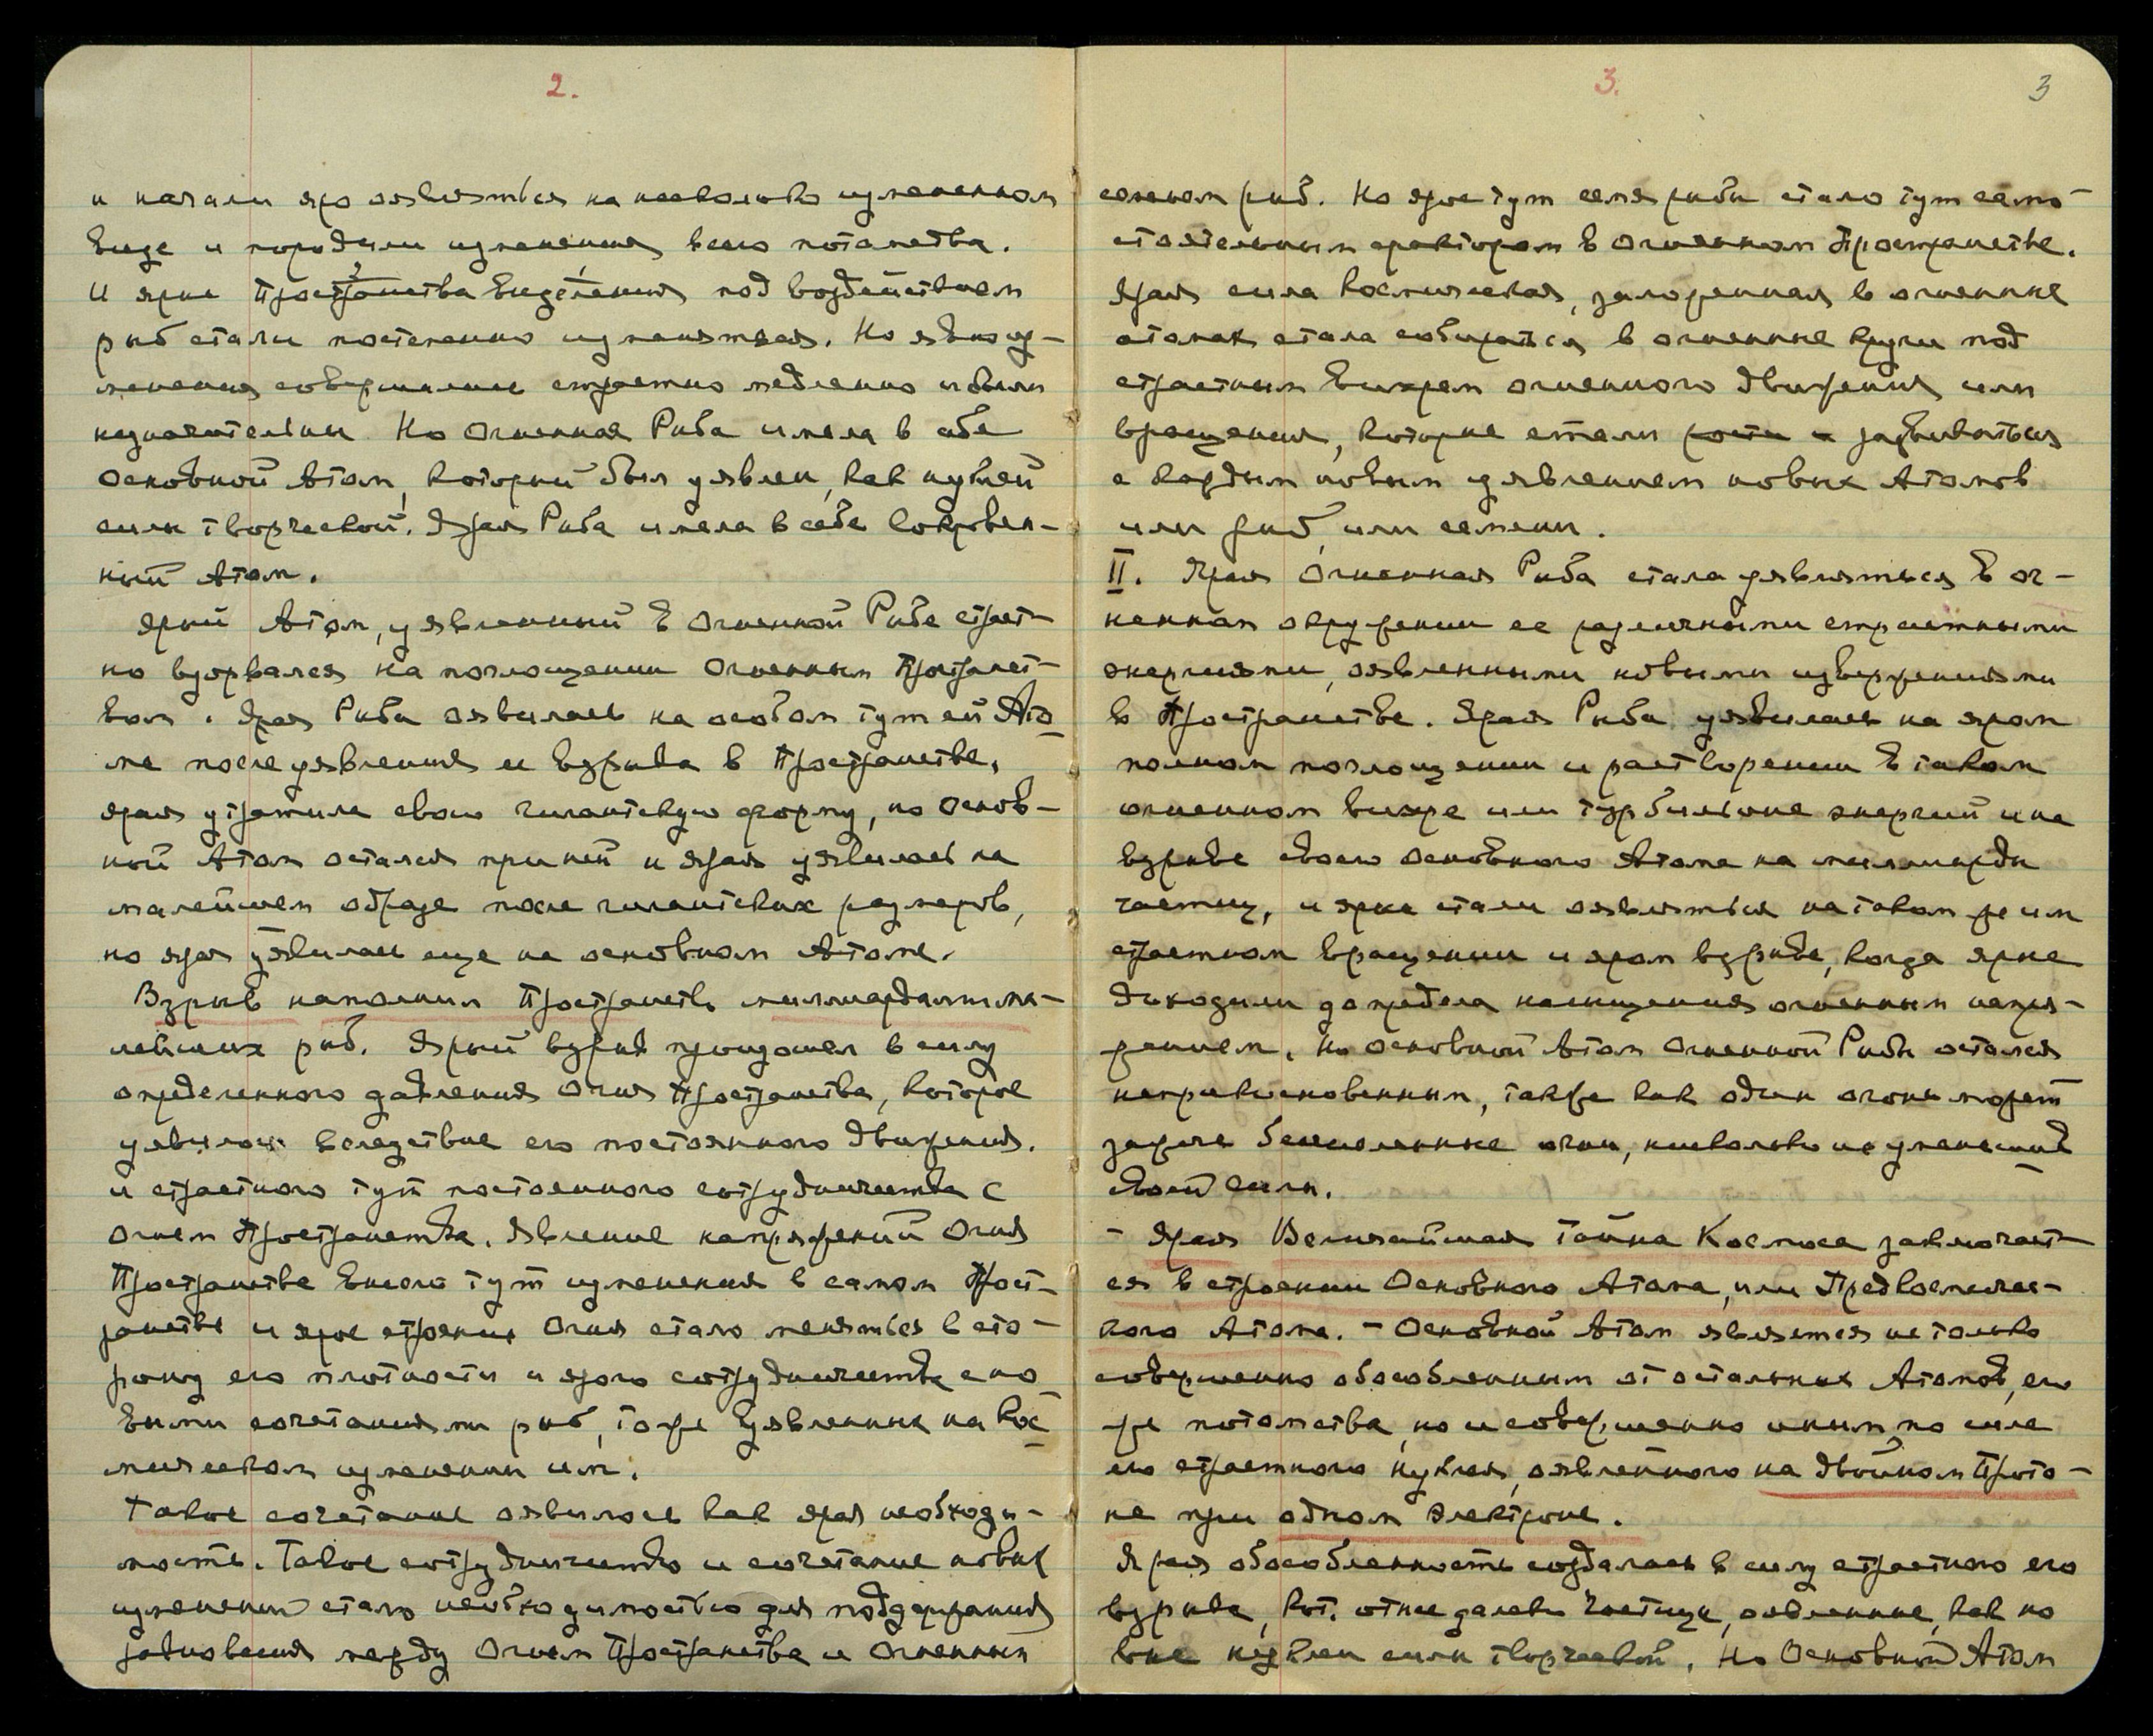 2.
и начали яро являться на несколько измененном
виде и породили изменения всего потомства.
И ярые Пространства Видéления под воздействием
рыб стали постепенно изменяться. Но явно из-
менения совершились страстно медленно и были
незначительны Но Огненная Рыба имела в себе
Основной Атом, который был уявлен, как нуклей
силы творческой. Ярая Рыба имела в себе Сокровен-
ный Атом.
Ярый Атом, уявленный в Огненной Рыбе страст-
но взорвался на поглощении Огненным Пространст-
вом. Ярая Рыба оявилась на особом тут ей Ато-
ме после уявления ее взрыва в Пространстве,
ярая утратила свою гигантскую форму, но Основ-
ной Атом остался при ней и ярая уявилась на
малейшем образе после гигантских размеров,
но ярая уявилась еще на основном Атоме.
Взрыв наполнил Пространство миллиардами ма-
лейших рыб. Ярый взрыв произошел в силу
определенного давления Огня Пространства, которое
уявилось вследствие его постоянного движения.
и страстного тут постоянного сотрудничества с
Огнем Пространства. Явление напряжений Огня
Пространства внесло тут изменения в самом Прост-
ранстве и ярое строение Огня стало меняться в сто-
рону его плотности и ярого сотрудничества с но
выми сочетаниями рыб, тоже уявленных на Кос-
мическом изменении им.
Такое сочетание оявилось как ярая необходи-
мость. Такое сотрудничество и сочетание новых
изменений стало необходимостью для поддержания
равновесия между Огнем Пространства и Огненным
3.
3
семенем рыб. Но ярое тут семя рыбы стало тут само-
стоятельным фактором в Огненном Пространстве.
Ярая сила Космическая, заложенная в огненных
атомах стала собираться в огненные круги под
страстным вихрем огненного движения или
вращения, которые стали расти и развиваться
с каждым новым уявлением новых Атомов
или рыб, или семени.
II. Ярая Огненная Рыба стала уявляться в ог-
ненном окружении ее различными страстными
энергиями, оявленными новыми извержениями
в Пространстве. Ярая Рыба уявилась на яром
полном поглощении и растворении в таком
огненном вихре или турбильоне энергий и на
взрыве своего Основного Атома на миллиарды
частиц, и ярые стали оявляться на таком же им
страстном вращении и яром взрыве, когда ярые
доходили до предела насыщения огненным напря-
жением. Но основной Атом Огненной Рыбы остался
неприкосновенным, также как один огонь может
зажечь бесчисленные огни, нисколько не уменьшив
своей силы.
- Ярая Величайшая Тайна Космоса заключает-
ся в строении Основного Атома, или Предкосмичес-
кого Атома. - Основной Атом является не только
совершенно обособленным от остальных Атомов, его
же потомства, но и совершенно иным, по силе
его страстного нуклея, оявленного на двойном Прото-
не при одном Электроне.
Ярая обособленность создалась в силу страстного его
взрыва, кот. отнес далеко частицы, оявленные, как но
вые нуклеи силы творческой. Но Основной Атом